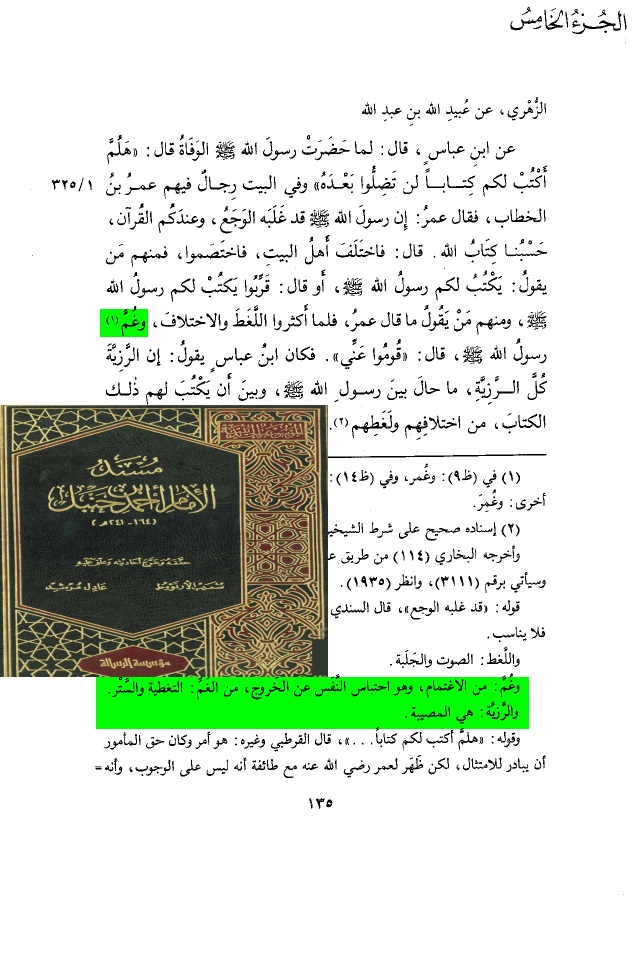 الجُزءُ الخَامِسُ
الزُّهْري، عن عُبيدِ الله بنِ عبدِ الله
عن ابنِ عباسٍ، قال: لما حَضَرَتْ رسولَ الله ﷺ الوَفَاةُ قال: «هَلُمَّ
أَكْتُبْ لكم كِتــابــاً لن تَضِلُّوا بَعْدَهُ» وفي البيت رِجالٌ فيهم عمـرُ بنُ ٣٢٥/١
الخطاب، فقال عمرُ: إن رسولَ الله ﷺ قد غَلَبَه الوَجَعُ، وعندَكُم القُرآن،
حَسْبُنـا كِتَابُ الله. قال: فاختَلَفَ أَهلُ البيتِ، فاختَصَموا، فمنهم مَن
يقولُ: يَكْتُبُ لكم رسولُ الله ﷺ، أو قال: قَرِّبُوا يَكتُبْ لكم رسولُ الله
ﷺ، ومنهم مَنْ يَقُولُ ما قال عمرُ، فلما أكثروا اللَّغَطَ والاختلافَ، وغُمَّ(١)
رسولُ الله ﷺ، قال: «قُومُوا عَنِّي». فكان ابنُ عباس يقولُ: إن الرَّزِيَّةَ
كُلَّ الــرَّزِيَّةِ، ما حالَ بينَ رسـولِ الله ﷺ، وبينَ أن يَكْتُبَ لهم ذٰلـك
الكتابَ، من اختلافِهِم ولَغَطِهم(٢).
مُسْنَد
الإمام أحمد بن حنبل
(١٦٤ - ٢٤١ هـ)
شعيب الأرنؤوط
عادل مرشد
مؤسسة الرسالة
(١) في (ظ٩): وغُمر، وفي (ظ١٤):
أخرى: وغُمِرَ.
(٢) إسناده صحيح على شرط الشيخين
وأخرجه البخاري (١١٤) من طريق
وسيأتي برقم (٣١١١)، وانظر (١٩٣٥).
قوله: «قد غلبه الوجع»، قال السندي
فلا يناسب.
واللَّغط: الصوت والجَلَبة.
وغُمَّ: من الاغتمام، وهو احتباس النَّفَس عن الخروج، من الغَمِّ: التغطية والسَّتْر.
والرَّزِيَّة: هي المصيبة.
وقوله: «هلمَّ أكتب لكم كتاباً...»، قال القرطبي وغيره: هو أمر وكان حق المأمور
أن يبادر للامتثال، لكن ظَهَر لعمر رضي الله عنه مع طائفة أنه ليس على الوجوب، وأنه =
١٣٥